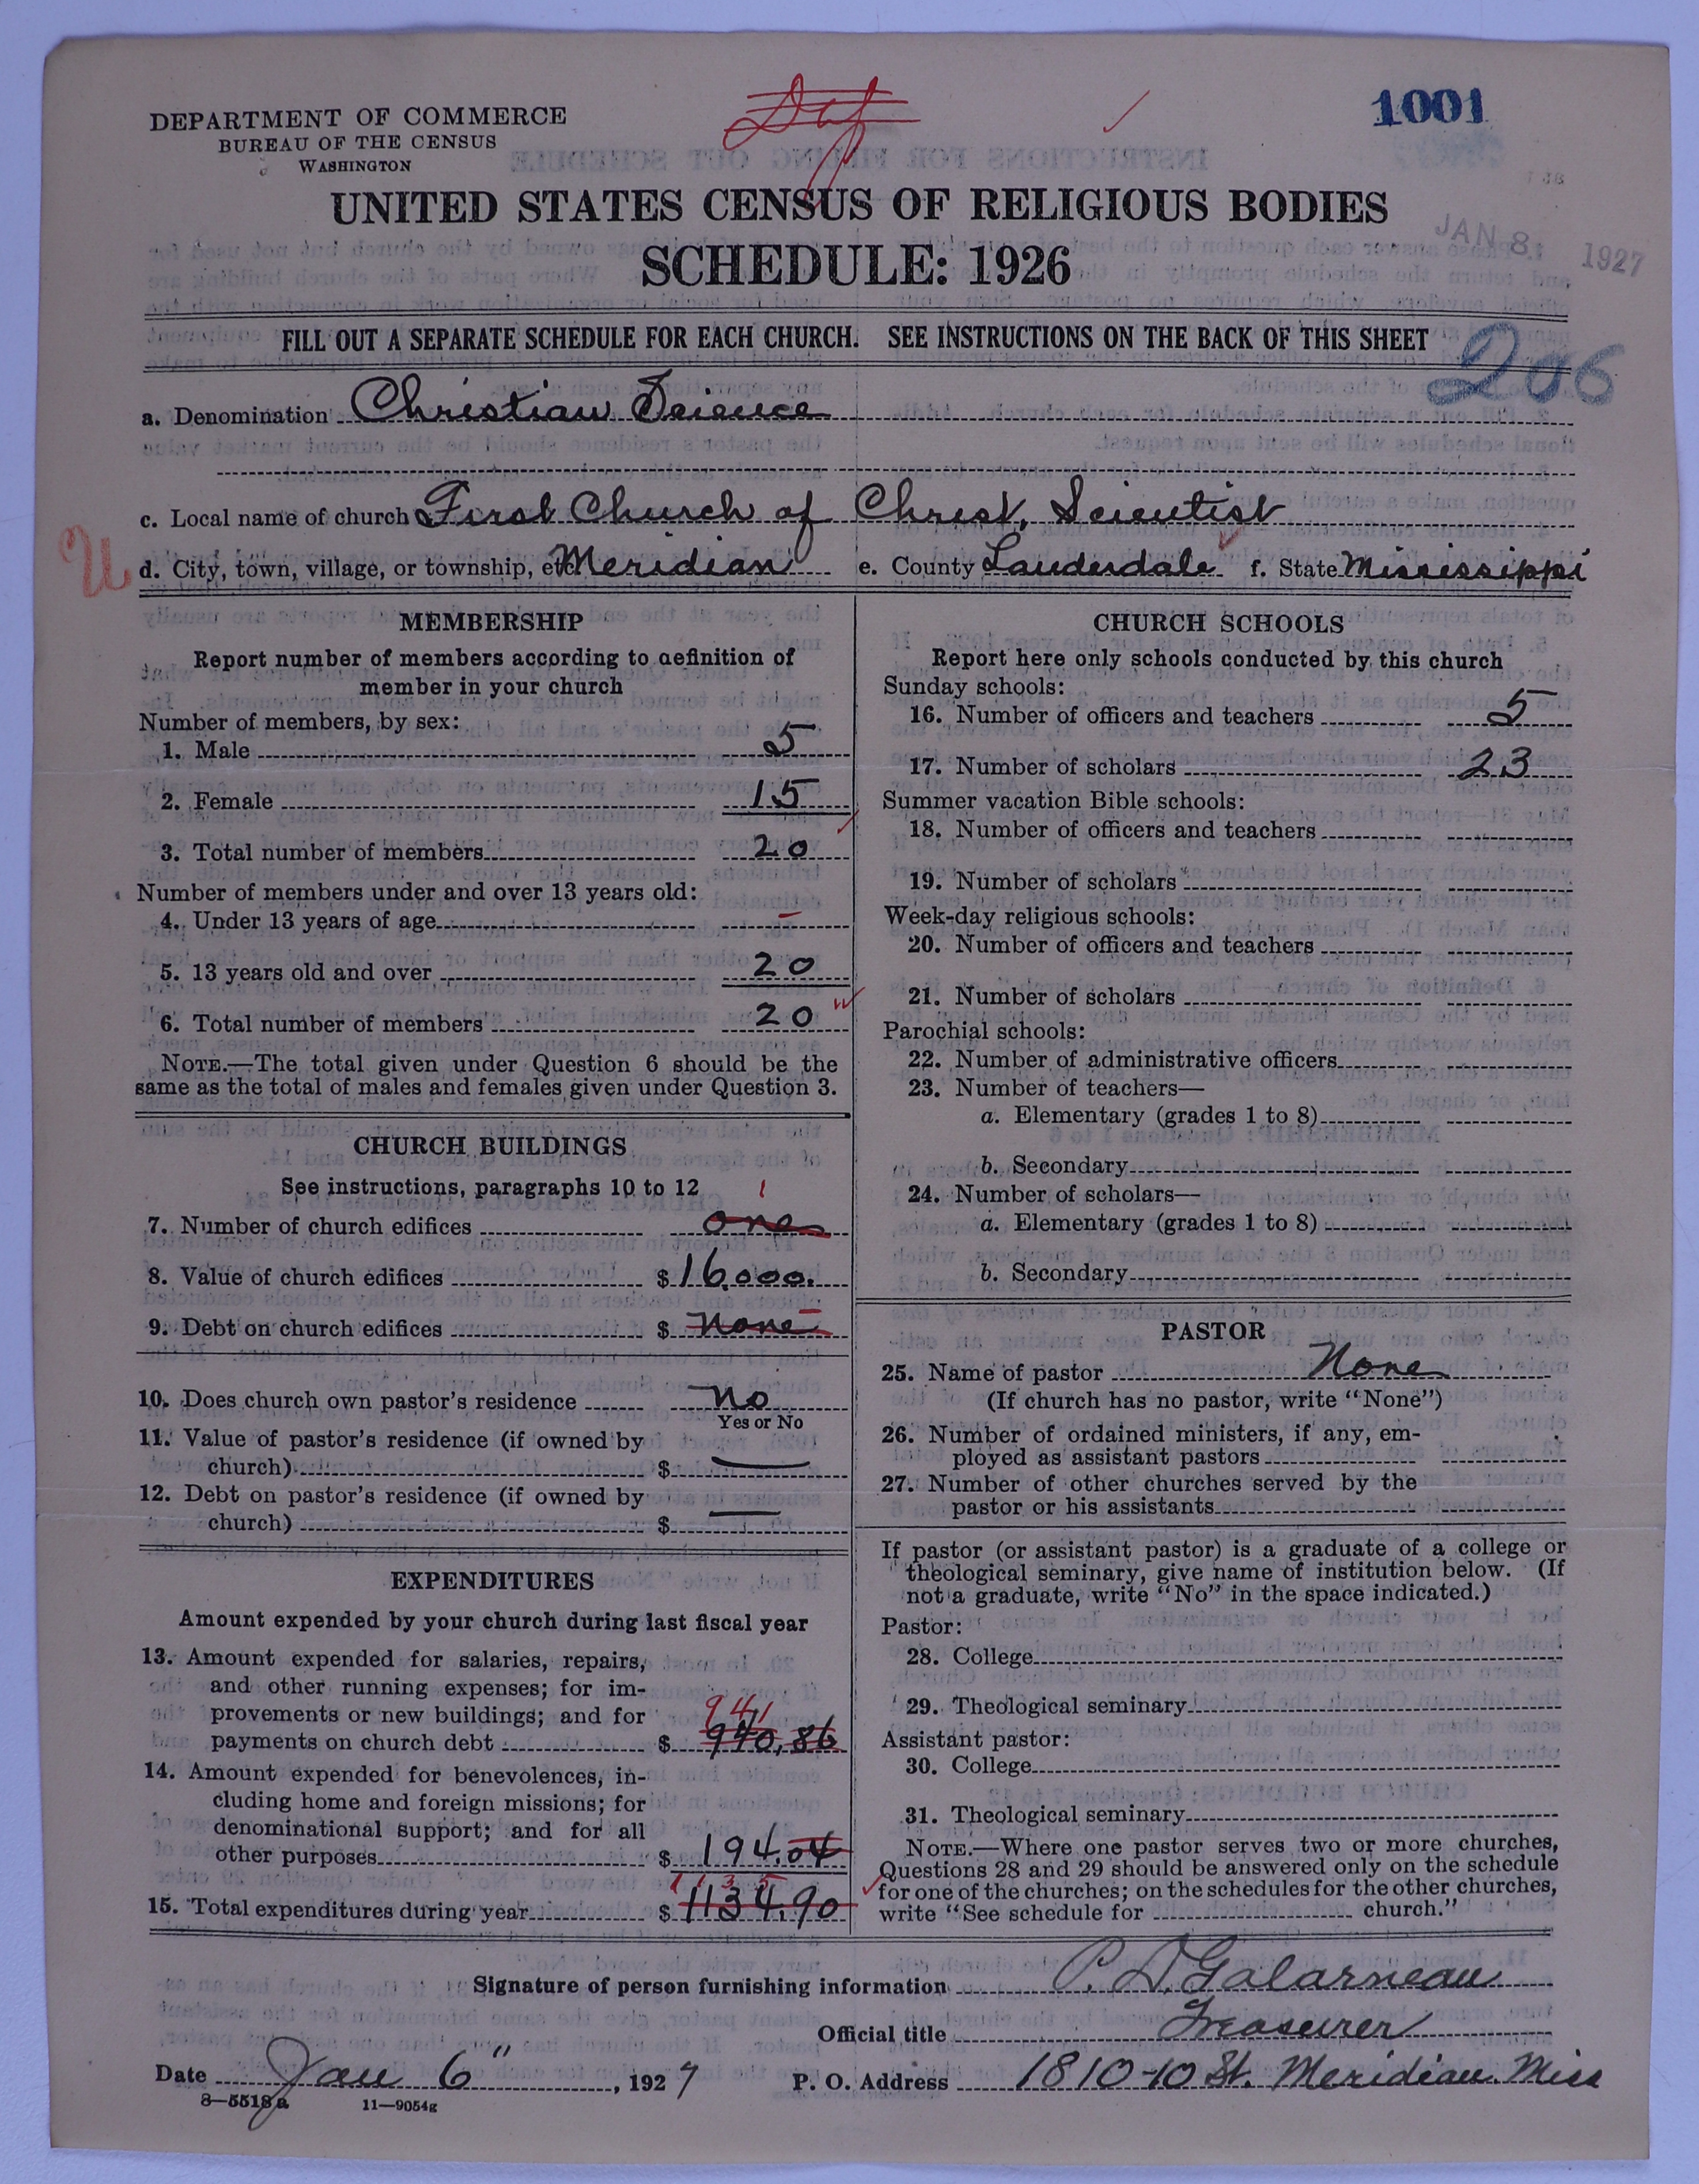 DEPARTMENT OF COMMERCE
BUREAU OF THE CENSUS
WASHINGTON
1001
UNITED STATES CENSUS OF RELIGIOUS BODIES
SCHEDULE: 1926
JAN 8 1927
FILL OUT A SEPARATE SCHEDULE FOR EACH CHURCH. SEE INSTRUCTIONS ON THE BACK OF THIS SHEET
206
a. Denomination Christian Science
c. Local name of church First Church of Christ, Scientist
U
d. City, town, village, or township, etc. Meridian e. County Lauderdale f. State Mississippi
MEMBERSHIP
Report number of members according to definition of
member in your church
Number of members, by sex:
1. Male 5
2. Female 15
3. Total number of members 20
Number of members under and over 13 years old:
4. Under 13 years of age –
5. 13 years old and over 20
6. Total number of members 20
NOTE.—The total given under Question 6 should be the
same as the total of males and females given under Question 3.
CHURCH BUILDINGS
See instructions, paragraphs 10 to 12
1
7. Number of church edifices one
8. Value of church edifices $ 16,000.
9. Debt on church edifices $ none
10. Does church own pastor's residence no
Yes or No
11. Value of pastor's residence (if owned by
church) $ —
12. Debt on pastor's residence (if owned by
church) $ —
EXPENDITURES
Amount expended by your church during last fiscal year
13. Amount expended for salaries, repairs,
and other running expenses; for im-
provements or new buildings; and for
941
payments on church debt $ 940.86
14. Amount expended for benevolences, in-
cluding home and foreign missions; for
denominational support; and for all
other purposes $ 194.04
1135
15. Total expenditures during year $ 1134.90
CHURCH SCHOOLS
Report here only schools conducted by this church
Sunday schools:
16. Number of officers and teachers 5
17. Number of scholars 23
Summer vacation Bible schools:
18. Number of officers and teachers
19. Number of scholars
Week-day religious schools:
20. Number of officers and teachers
21. Number of scholars
Parochial schools:
22. Number of administrative officers
23. Number of teachers—
a. Elementary (grades 1 to 8)
b. Secondary
24. Number of scholars—
a. Elementary (grades 1 to 8)
b. Secondary
PASTOR
25. Name of pastor None
(If church has no pastor, write "None")
26. Number of ordained ministers, if any, em-
ployed as assistant pastors
27. Number of other churches served by the
pastor or his assistants
If pastor (or assistant pastor) is a graduate of a college or
theological seminary, give name of institution below. (If
not a graduate, write "No" in the space indicated.)
Pastor:
28. College
29. Theological seminary
Assistant pastor:
30. College
31. Theological seminary
NOTE.—Where one pastor serves two or more churches,
Questions 28 and 29 should be answered only on the schedule
for one of the churches; on the schedules for the other churches,
write "See schedule for church."
Signature of person furnishing information P. D. Galarneau
Official title Treasurer
Date Jan 6", 1927 P. O. Address 1810-10 St. Meridian. Miss
8—5518a 11—9054g